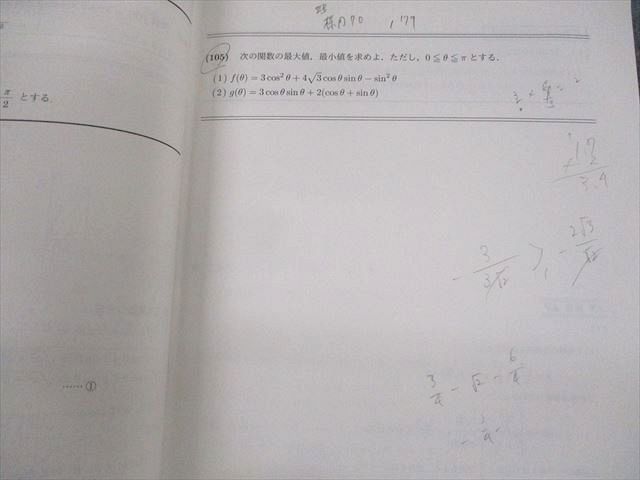 π/2 とする.
(105) 次の関数の最大値,最小値を求めよ.ただし,0≦θ≦πとする.
(1) f(θ)=3cos²θ+4√3cosθsinθ−sin²θ
(2) g(θ)=3cosθsinθ+2(cosθ+sinθ)
17
3.4
- 3/3√2 ≧ - 2√3/√2
3/4 - √2 - 6/4
……①